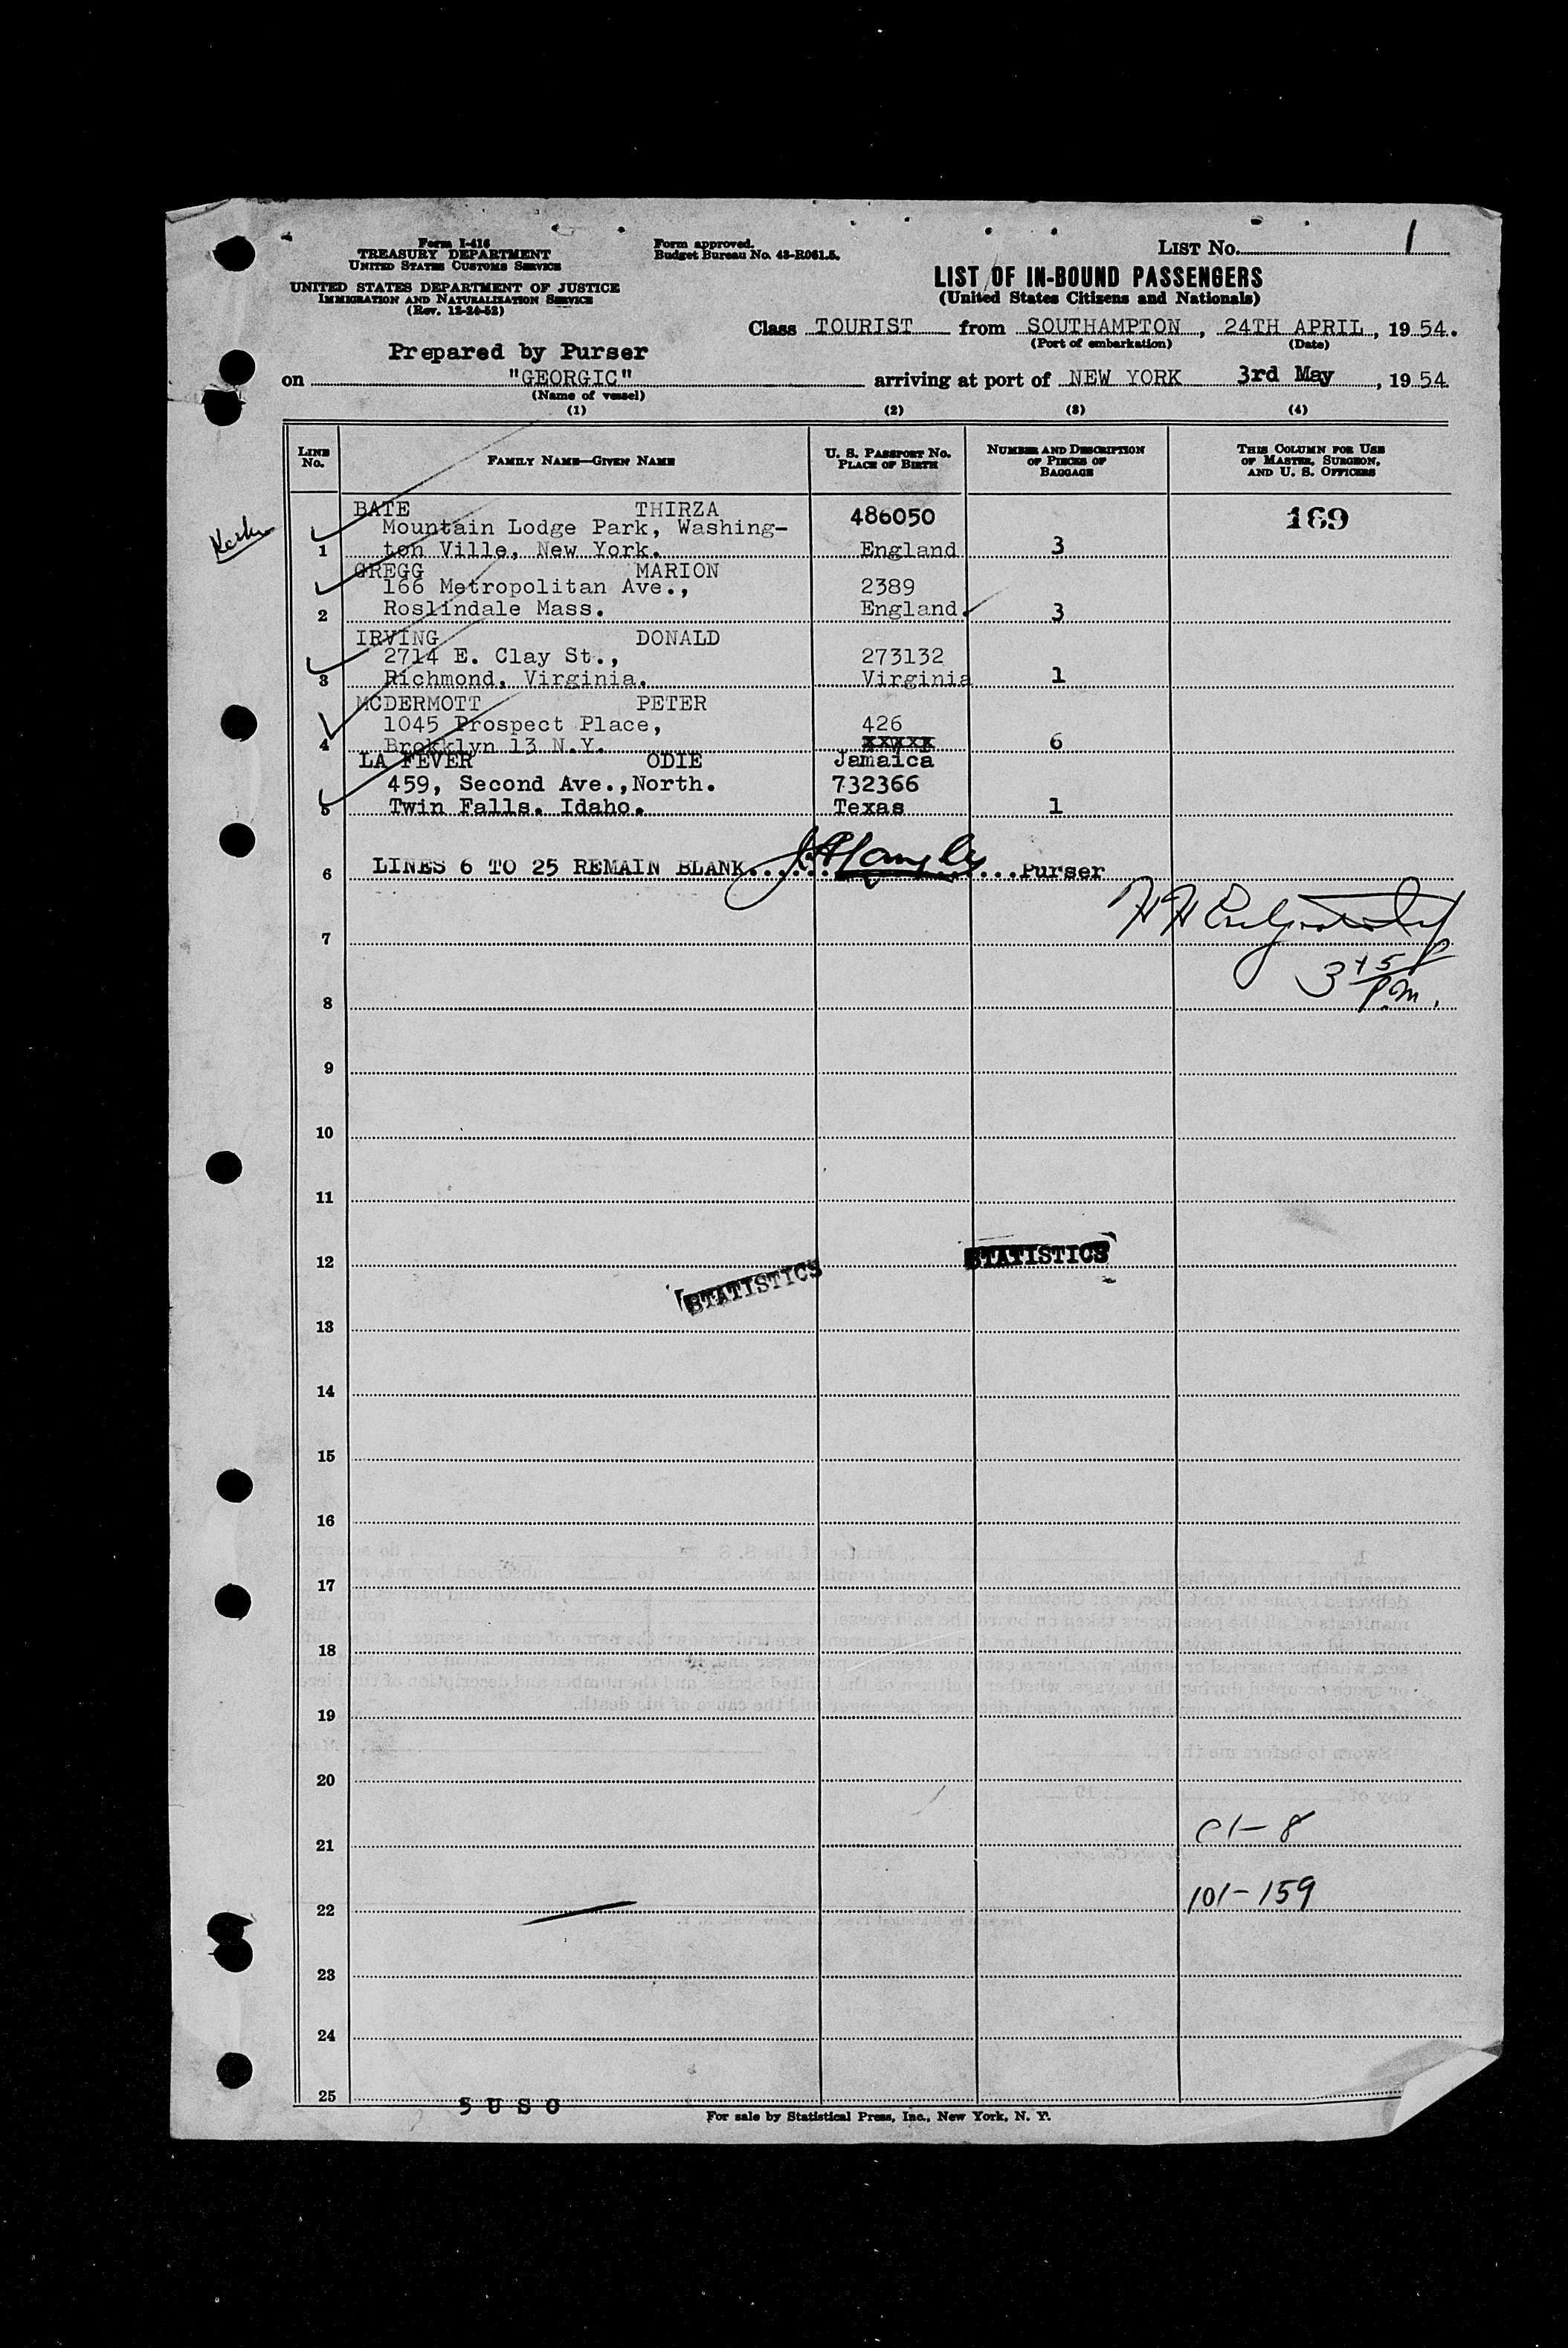 Form I-416
TREASURY DEPARTMENT
UNITED STATES CUSTOMS SERVICE
UNITED STATES DEPARTMENT OF JUSTICE
IMMIGRATION AND NATURALIZATION SERVICE
(Rev. 12-24-52)
Form approved.
Budget Bureau No. 43-R061.5.
LIST No. 1
LIST OF IN-BOUND PASSENGERS
(United States Citizens and Nationals)
Class TOURIST from SOUTHAMPTON, 24TH APRIL, 1954.
(Port of embarkation) (Date)
Prepared by Purser
on "GEORGIC" arriving at port of NEW YORK 3rd May, 1954
(Name of vessel)
(1) (2) (3) (4)
LINE No. FAMILY NAME—GIVEN NAME U. S. PASSPORT No. PLACE OF BIRTH NUMBER AND DESCRIPTION OF PIECES OF BAGGAGE THIS COLUMN FOR USE OF MASTER, SURGEON, AND U. S. OFFICERS
BATE THIRZA 486050 169
Mountain Lodge Park, Washing-
1 ton Ville, New York. England 3
GREGG MARION
166 Metropolitan Ave., 2389
2 Roslindale Mass. England. 3
IRVING DONALD
2714 E. Clay St., 273132
3 Richmond, Virginia. Virginia 1
MCDERMOTT PETER
1045 Prospect Place, 426
4 Brokklyn 13 N.Y. xxxxx 6
LA FEVER ODIE Jamaica
459, Second Ave.,North. 732366
5 Twin Falls. Idaho. Texas 1
6 LINES 6 TO 25 REMAIN BLANK. Purser
7
3 45
P.m.
8
9
10
11
12 STATISTICS
STATISTICS
13
14
15
16
17
18
19
20
21
22 101-159
23
24
25
5 U S O
For sale by Statistical Press, Inc., New York, N. Y.